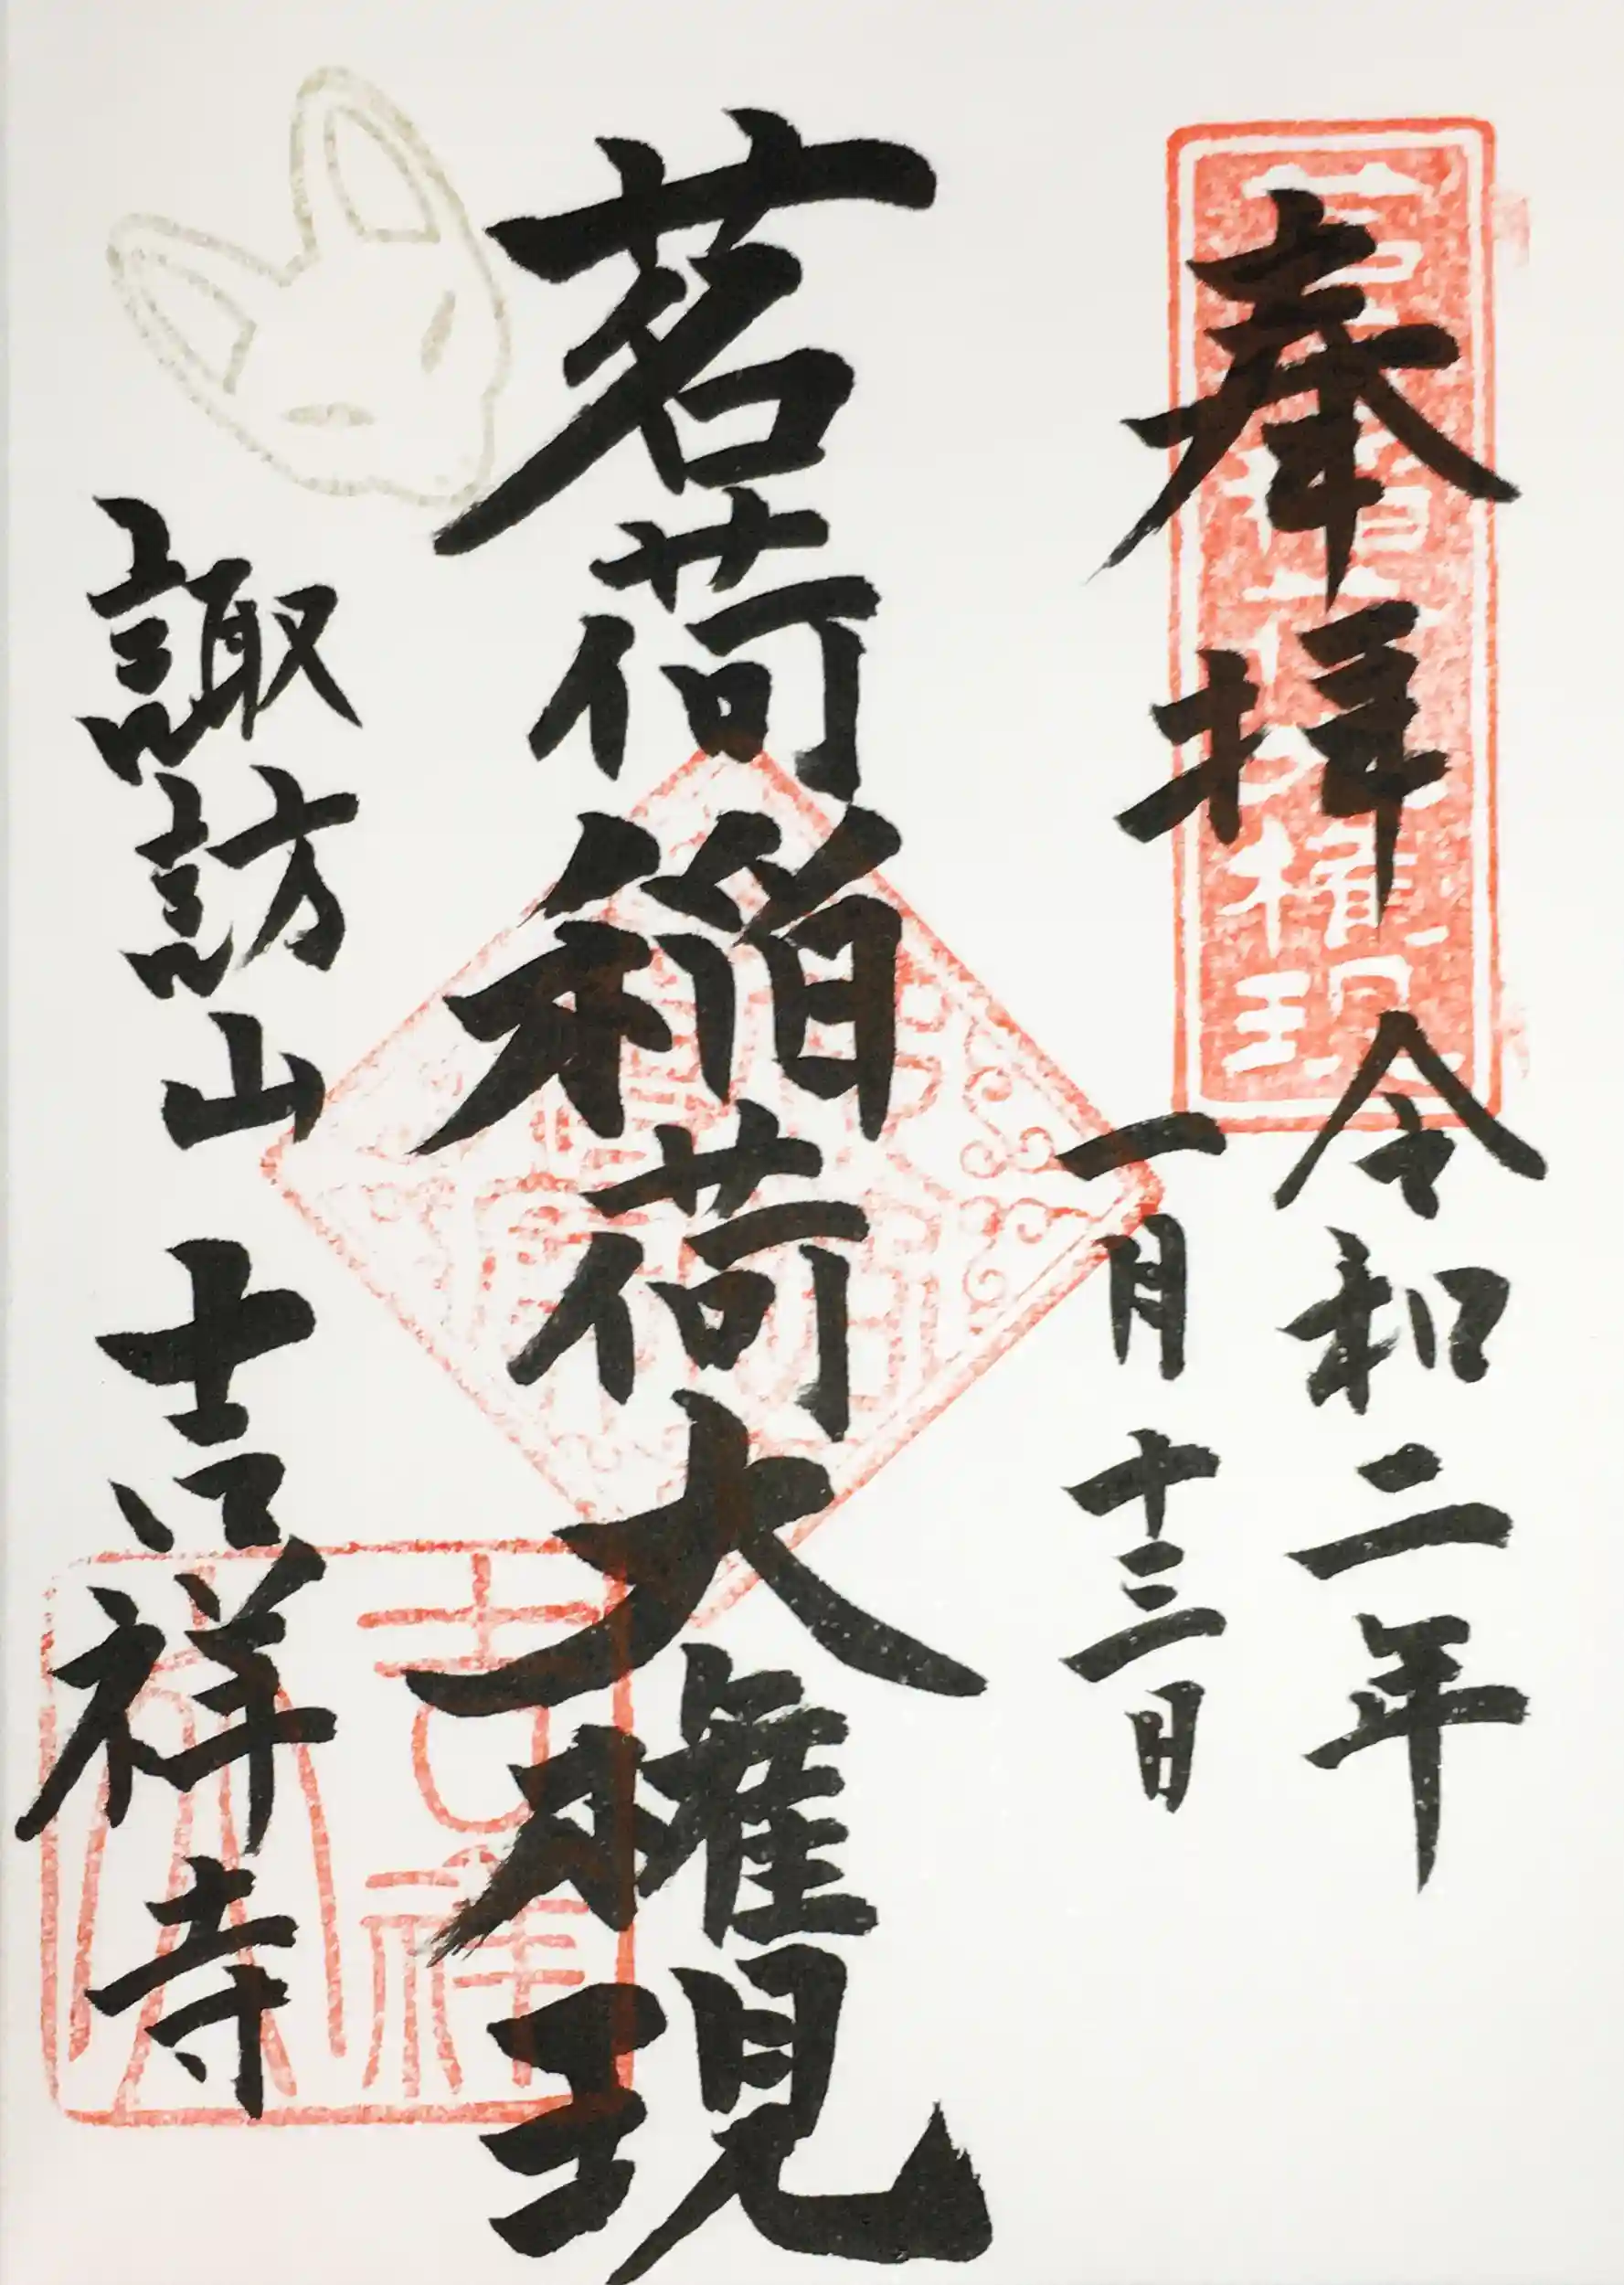 奉拝
令和二年
一月十三日
茗荷稲荷大権現
諏訪山 吉祥寺